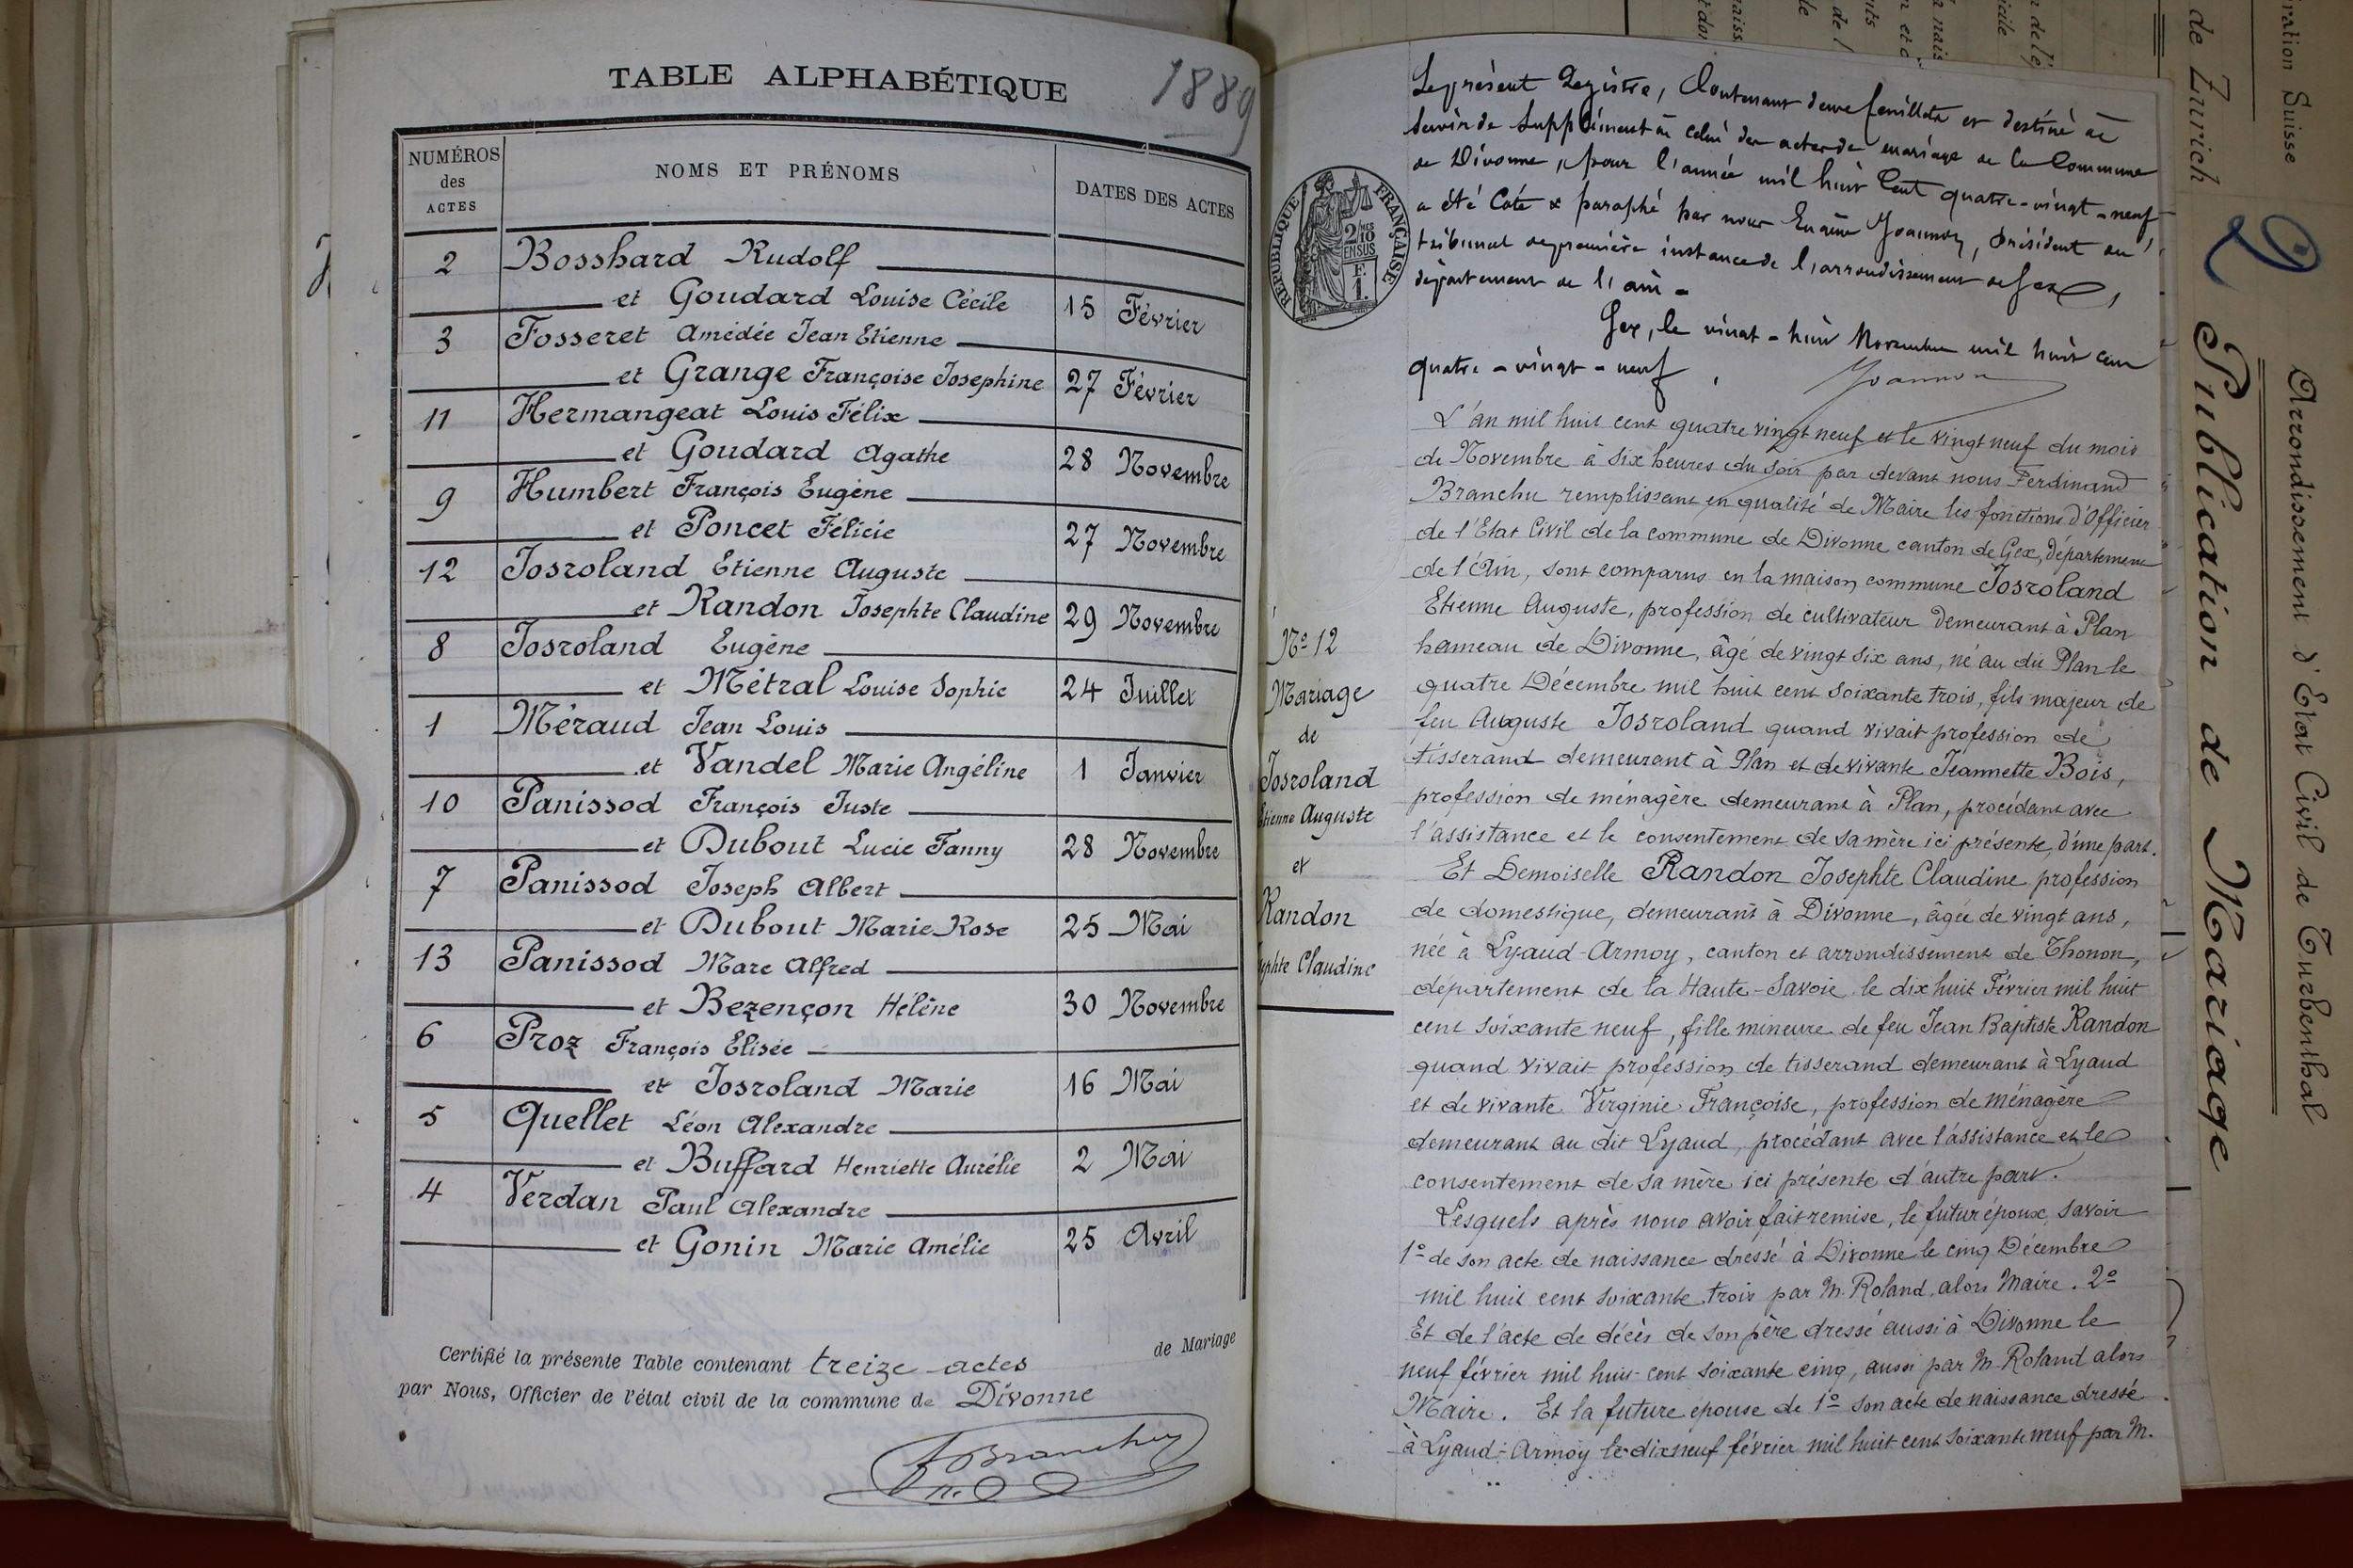 TABLE ALPHABÉTIQUE
1889
NUMÉROS
des
ACTES
NOMS ET PRÉNOMS
DATES DES ACTES
2 Bosshard Rudolf
et Goudard Louise Cécile 15 Février
3 Fosseret Amédée Jean Etienne
et Grange Françoise Josephine 27 Février
11 Hermangeat Louis Félix
et Goudard Agathe 28 Novembre
9 Humbert François Eugène
et Poncet Félicie 27 Novembre
12 Josroland Etienne Auguste
et Randon Josephte Claudine 29 Novembre
8 Josroland Eugène
et Métral Louise Sophie 24 Juillet
1 Méraud Jean Louis
et Vandel Marie Angéline 1 Janvier
10 Panissod François Juste
et Dubout Lucie Fanny 28 Novembre
7 Panissod Joseph Albert
et Dubout Marie Rose 25 Mai
13 Panissod Marc Alfred
et Bezençon Hélène 30 Novembre
6 Proz François Elisée
et Josroland Marie 16 Mai
5 Quellet Léon Alexandre
et Buffard Henriette Aurélie 2 Mai
4 Verdan Paul Alexandre
et Gonin Marie Amélie 25 Avril
Certifié la présente Table contenant treize actes de Mariage
par Nous, Officier de l'état civil de la commune de Divonne
Branchu
Le présent Registre, Contenant deux feuillets et destiné à
servir de Supplément à celui des actes de mariage de la Commune
de Divonne, pour l'année mil huit Cent quatre-vingt-neuf
a été Coté & paraphé par nous Eugène Joannon, président du
tribunal de première instance de l'arrondissement de Gex,
département de l'ain.
Gex, le vingt-huit Novembre mil huit cent
quatre-vingt-neuf
Joannon
RÉPUBLIQUE FRANÇAISE
2/10 MES
EN SUS
F.
1.
L'an mil huit cent quatre vingt neuf et le vingt neuf du mois
de Novembre à six heures du soir par devant nous Ferdinand
Branchu remplissant en qualité de Maire les fonctions d'Officier
de l'Etat Civil de la commune de Divonne canton de Gex, département
de l'Ain, sont comparus en la maison commune Josroland
Etienne Auguste, profession de cultivateur demeurant à Plan
hameau de Divonne, âgé de vingt six ans, né au dit Plan le
quatre Décembre mil huit cent soixante trois, fils majeur de
feu Auguste Josroland quand vivait profession de
tisserand demeurant à Plan et de vivante Jeannette Bois,
profession de ménagère demeurant à Plan, procédant avec
l'assistance et le consentement de sa mère ici présente, d'une part.
Et Demoiselle Randon Josephte Claudine profession
de domestique, demeurant à Divonne, âgée de vingt ans,
née à Lyaud-Armoy, canton et arrondissement de Thonon,
département de la Haute-Savoie le dix huit Février mil huit
cent soixante neuf, fille mineure de feu Jean Baptiste Randon
quand vivait profession de tisserand demeurant à Lyaud
et de vivante Virginie Françoise, profession de ménagère
demeurant au dit Lyaud, procédant avec l'assistance et le
consentement de sa mère ici présente d'autre part.
Lesquels après nous avoir fait remise, le futur époux, savoir
1º de son acte de naissance dressé à Divonne le cinq Décembre
mil huit cent soixante trois par M. Roland, alors Maire. 2º
Et de l'acte de décès de son père dressé aussi à Divonne le
neuf février mil huit cent soixante cinq, aussi par M. Roland alors
Maire. Et la future épouse de 1º son acte de naissance dressé
à Lyaud-Armoy le dix neuf février mil huit cent soixante neuf par M.
Nº 12
Mariage
de
Josroland
Etienne Auguste
et
Randon
ephte Claudine
ration Suisse
de Zurich
Arrondissement d'Etat Civil de Turbenthal
Publication de Mariage